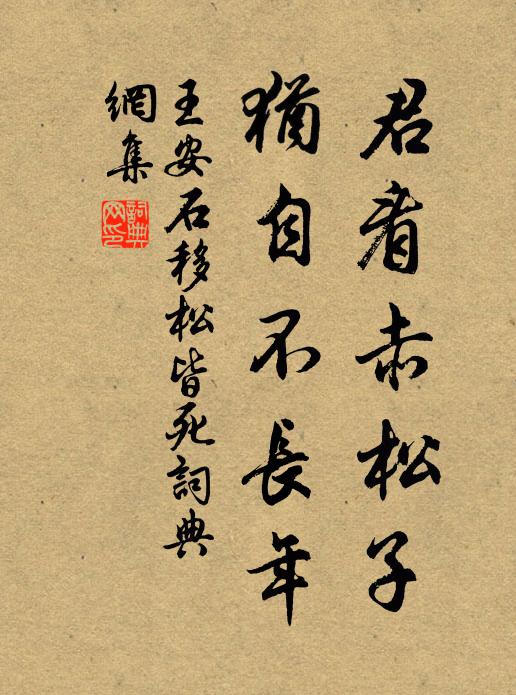 君看赤松子
猶自不長年
王安石移松皆死詞典
網集
詞典
網印